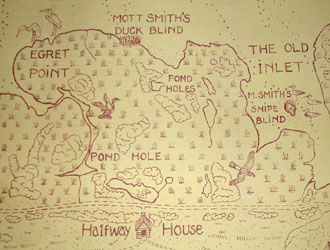 MOTT SMITH'S
DUCK BLIND
EGRET
POINT
THE OLD
INLET
POND
HOLES
M. SMITH'S
SNIPE
BLIND
POND HOLE
Halfway House